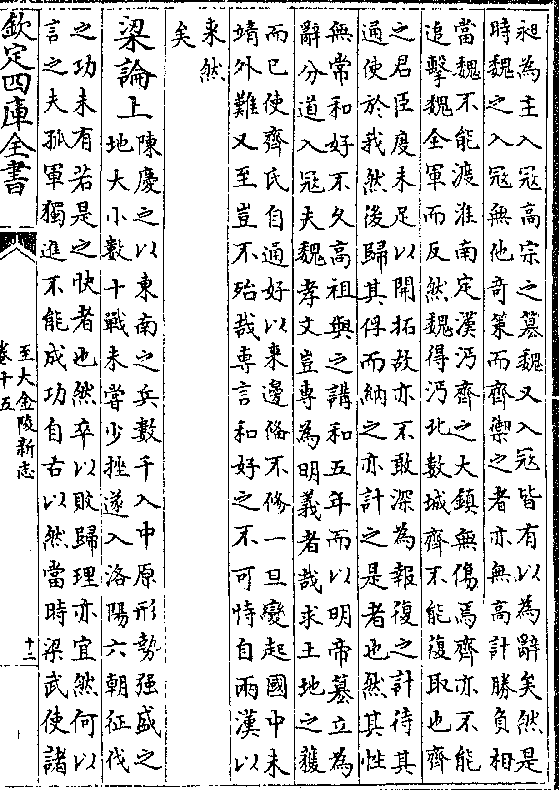 昶為主入寇高宗之篡魏又入寇皆有以為辭矣然是
時魏之入寇無他奇策而齊禦之者亦無高計勝負相
當魏不能渡淮南定漢沔齊之大鎮無傷焉齊亦不能
追擊魏全軍而反然魏得沔北數城齊不能復取也齊
之君臣度未足以開拓故亦不敢深為報復之計待其
通使於我然後歸其俘而納之亦計之是者也然其性
無常和好不久高祖與之講和五年而以明帝篡立為
辭分道入寇夫魏孝文豈專為明義者哉求土地之獲
而已使齊氏自通好以來邊備不修一旦變起國中未
靖外難又至豈不殆哉專言和好之不可恃自兩漢以
來然
矣
梁論上
陳慶之以東南之兵數千入中原形勢强盛之
地大小數十戰未嘗少挫遂入洛陽六朝征伐
之功未有若是之快者也然卒以敗歸理亦宜然何以
言之夫孤軍獨進不能成功自古以然當時梁武使諸
欽定四庫全書
至大金陵新志
卷十五
十二